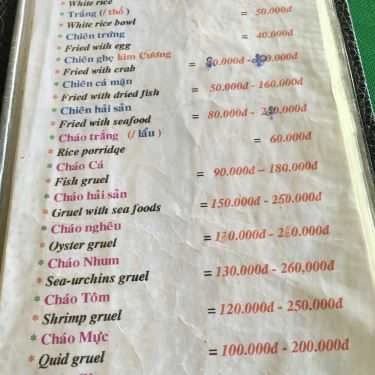 * White rice
* Trắng (/ thố ) = 50.000đ
* White rice bowl
* Chiên trứng = 40.000đ
* Fried with egg
* Chiên ghẹ kim Cương
* Fried with crab
* Chiên cá mặn = 50.000đ - 160.000đ
* Fried with dried fish
* Chiên hải sản = 80.000đ -
* Fried with seafood
* Cháo trắng (/ lẩu ) = 60.000đ
* Rice porridge
* Cháo Cá = 90.000đ - 180.000đ
* Fish gruel
* Cháo hải sản = 150.000đ - 250.000đ
* Gruel with sea foods
* Cháo nghêu
* Oyster gruel
* Cháo Nhum = 130.000đ - 260,000đ
* Sea-urchins gruel
* Cháo Tôm = 120.000đ - 250.000đ
* Shrimp gruel
* Cháo Mực = 100.000đ - 200.000đ
* Quid gruel